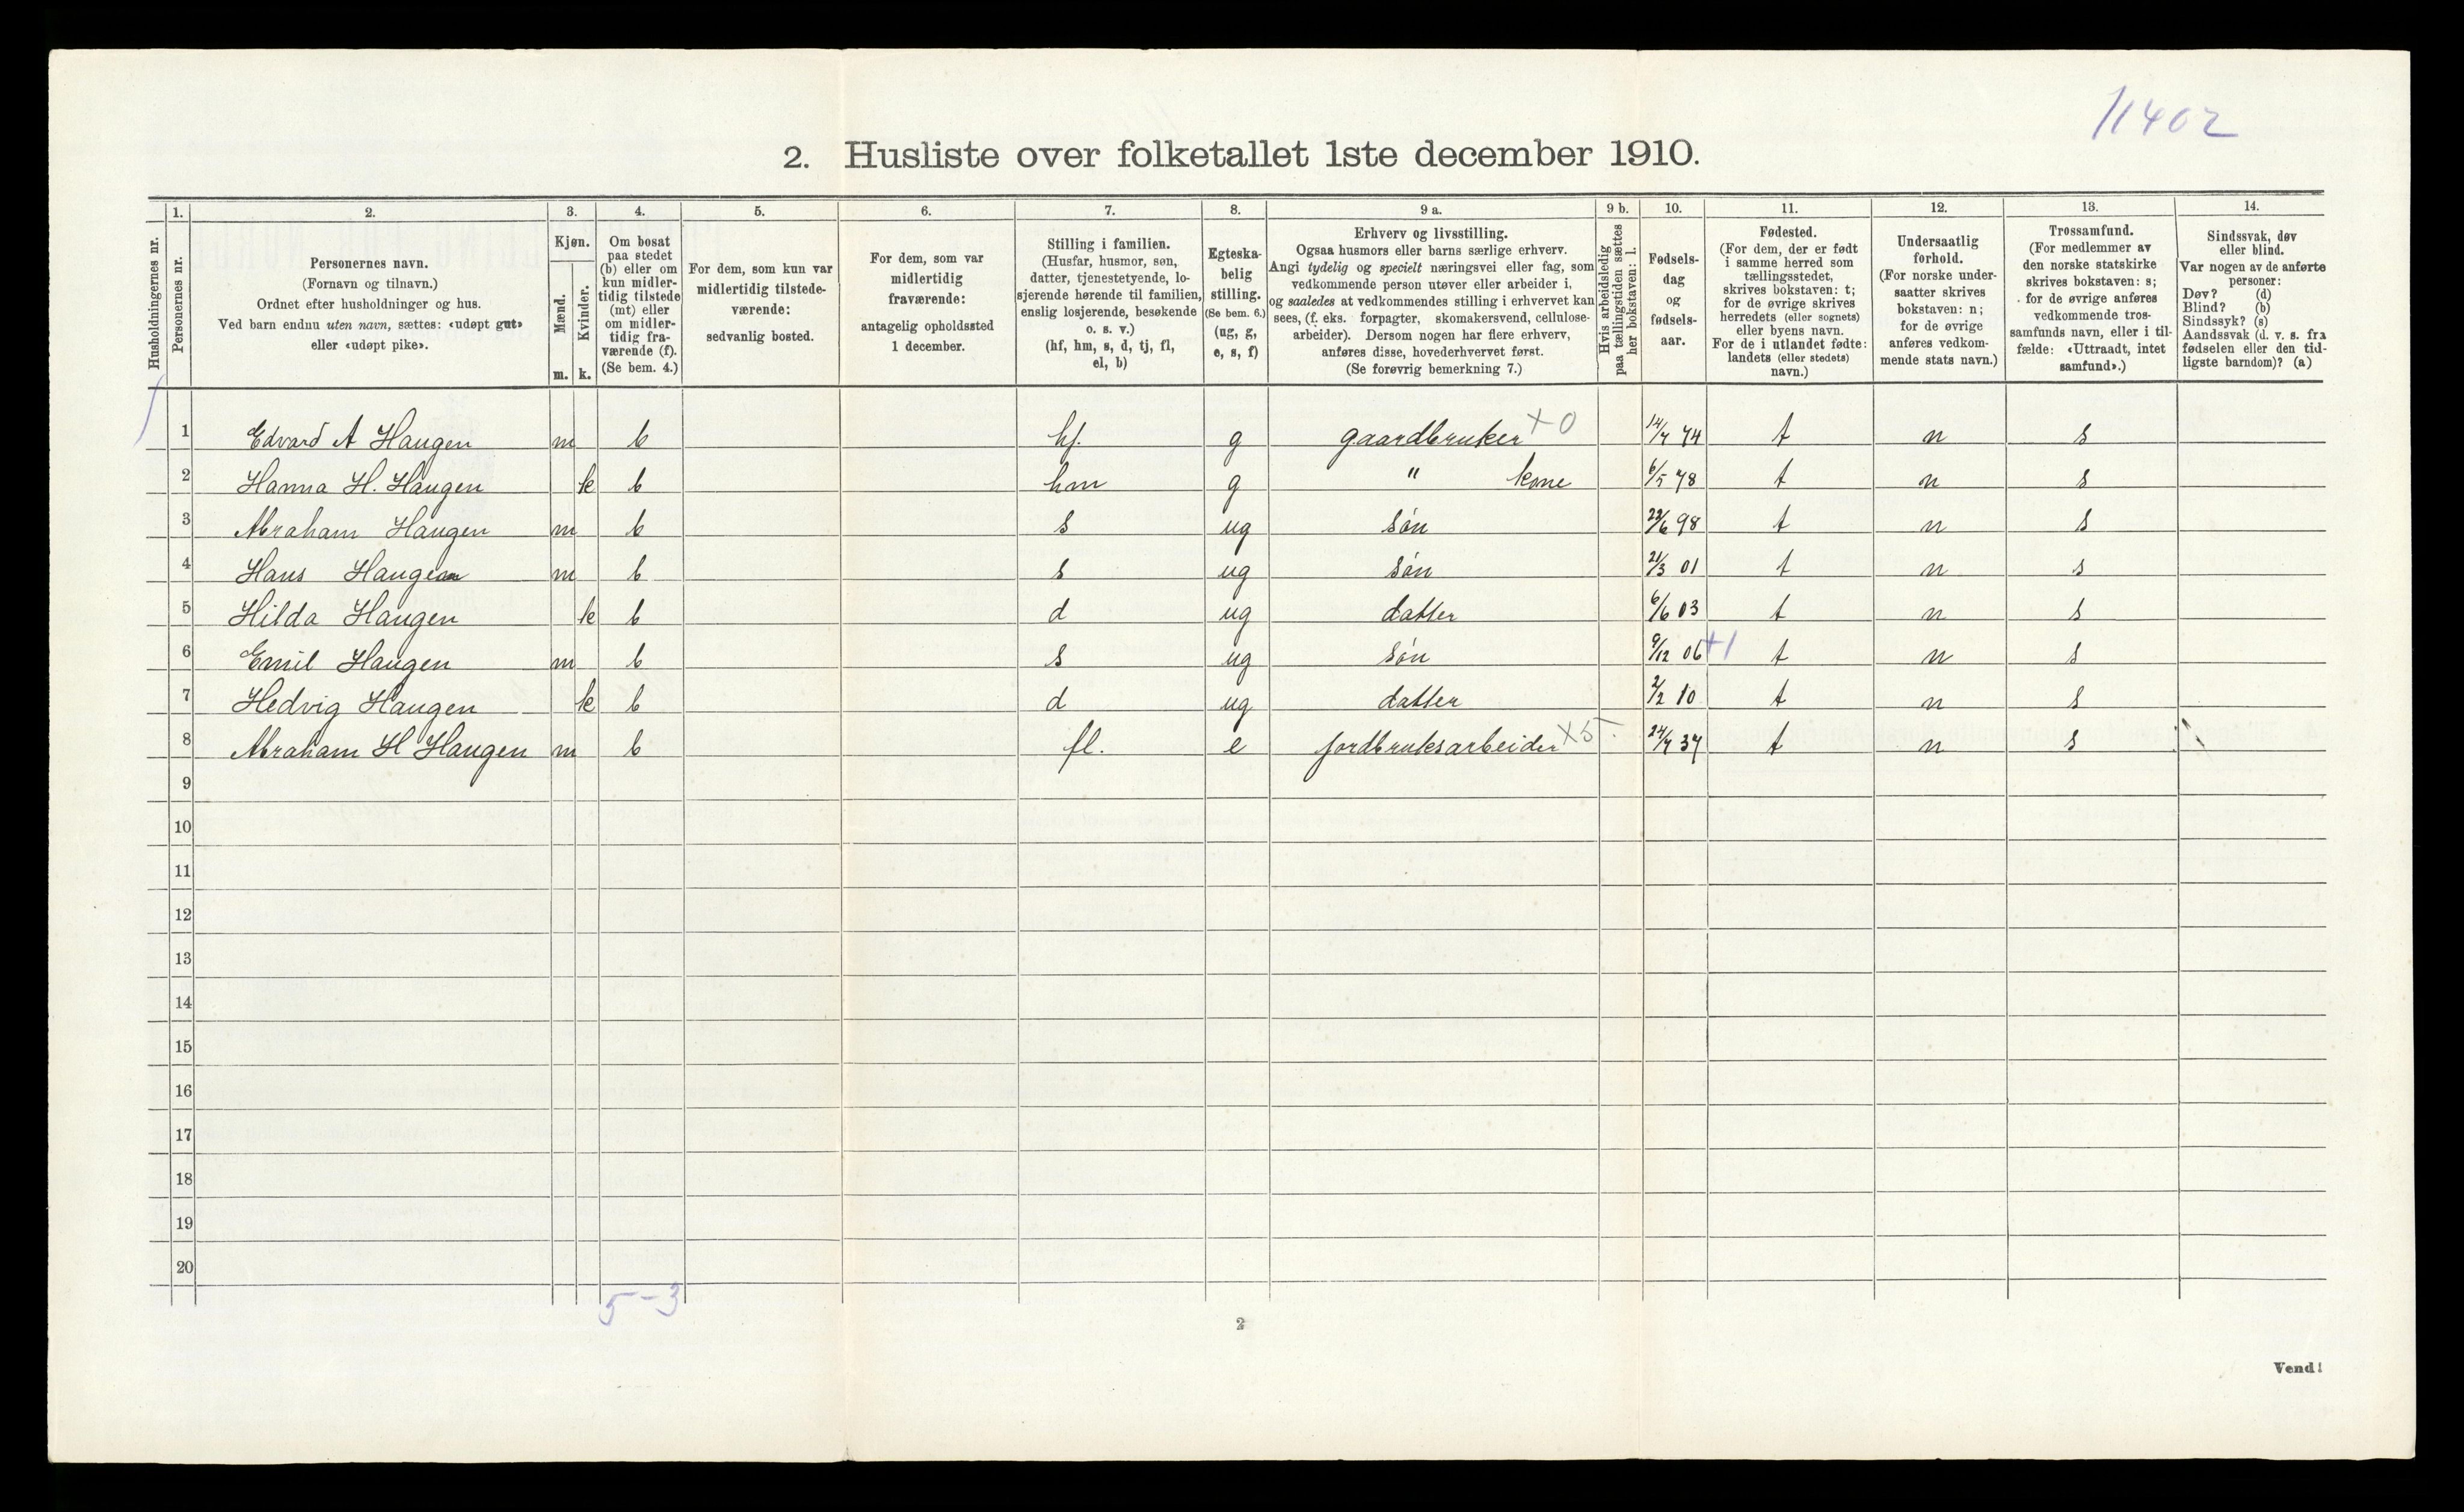 11402
2. Husliste over folketallet 1ste december 1910.
Husholdningernes nr.
1.
Personernes nr.
2.
Personernes navn.
(Fornavn og tilnavn.)
Ordnet efter husholdninger og hus.
Ved barn endnu uten navn, sættes: «udøpt gut»
eller «udøpt pike».
3.
Kjøn.
Mænd.
Kvinder.
m. k.
4.
Om bosat
paa stedet
(b) eller om
kun midler-
tidig tilstede
(mt) eller
om midler-
tidig fra-
værende (f).
(Se bem. 4.)
5.
For dem, som kun var
midlertidig tilstede-
værende:
sedvanlig bosted.
6.
For dem, som var
midlertidig
fraværende:
antagelig opholdssted
1 december.
7.
Stilling i familien.
(Husfar, husmor, søn,
datter, tjenestetyende, lo-
sjerende hørende til familien,
enslig losjerende, besøkende
o. s. v.)
(hf, hm, s, d, tj, fl,
el, b)
8.
Egteska-
belig
stilling.
(Se bem. 6.)
(ug, g,
e, s, f)
9 a.
Erhverv og livsstilling.
Ogsaa husmors eller barns særlige erhverv.
Angi tydelig og specielt næringsvei eller fag, som
vedkommende person utøver eller arbeider i,
og saaledes at vedkommendes stilling i erhvervet kan
sees, (f. eks. forpagter, skomakersvend, cellulose-
arbeider). Dersom nogen har flere erhverv,
anføres disse, hovederhvervet først.
(Se forøvrig bemerkning 7.)
9 b.
Hvis arbeidsledig
paa tællingstiden sættes
her bokstaven: l.
10.
Fødsels-
dag
og
fødsels-
aar.
11.
Fødested.
(For dem, der er født
i samme herred som
tællingsstedet,
skrives bokstaven: t;
for de øvrige skrives
herredets (eller sognets)
eller byens navn.
For de i utlandet fødte:
landets (eller stedets)
navn.)
12.
Undersaatlig
forhold.
(For norske under-
saatter skrives
bokstaven: n;
for de øvrige
anføres vedkom-
mende stats navn.)
13.
Trossamfund.
(For medlemmer av
den norske statskirke
skrives bokstaven: s;
for de øvrige anføres
vedkommende tros-
samfunds navn, eller i til-
fælde: «Uttraadt, intet
samfund».)
14.
Sindssvak, døv
eller blind.
Var nogen av de anførte
personer:
Døv? (d)
Blind? (b)
Sindssyk? (s)
Aandssvak (d. v. s. fra
fødselen eller den tid-
ligste barndom)? (a)
1 Edvard A Haugen m b hf. g gaardbruker X0 14/7 74 t n s
2 Hanna H. Haugen k b hm g " kone 6/5 78 t n s
3 Abraham Haugen m b s ug søn 22/6 98 t n s
4 Hans Haugen m b s ug søn 21/3 01 t n s
5 Hilda Haugen k b d ug datter 6/6 03 t n s
6 Emil Haugen m b s ug søn 9/12 06 +1 t n s
7 Hedvig Haugen k b d ug datter 2/2 10 t n s
8 Abraham H Haugen m b fl. e jordbruksarbeider X5. 24/7 37 t n s
9
10
11
12
13
14
15
16
17
18
19
20
5-3
2
Vend!